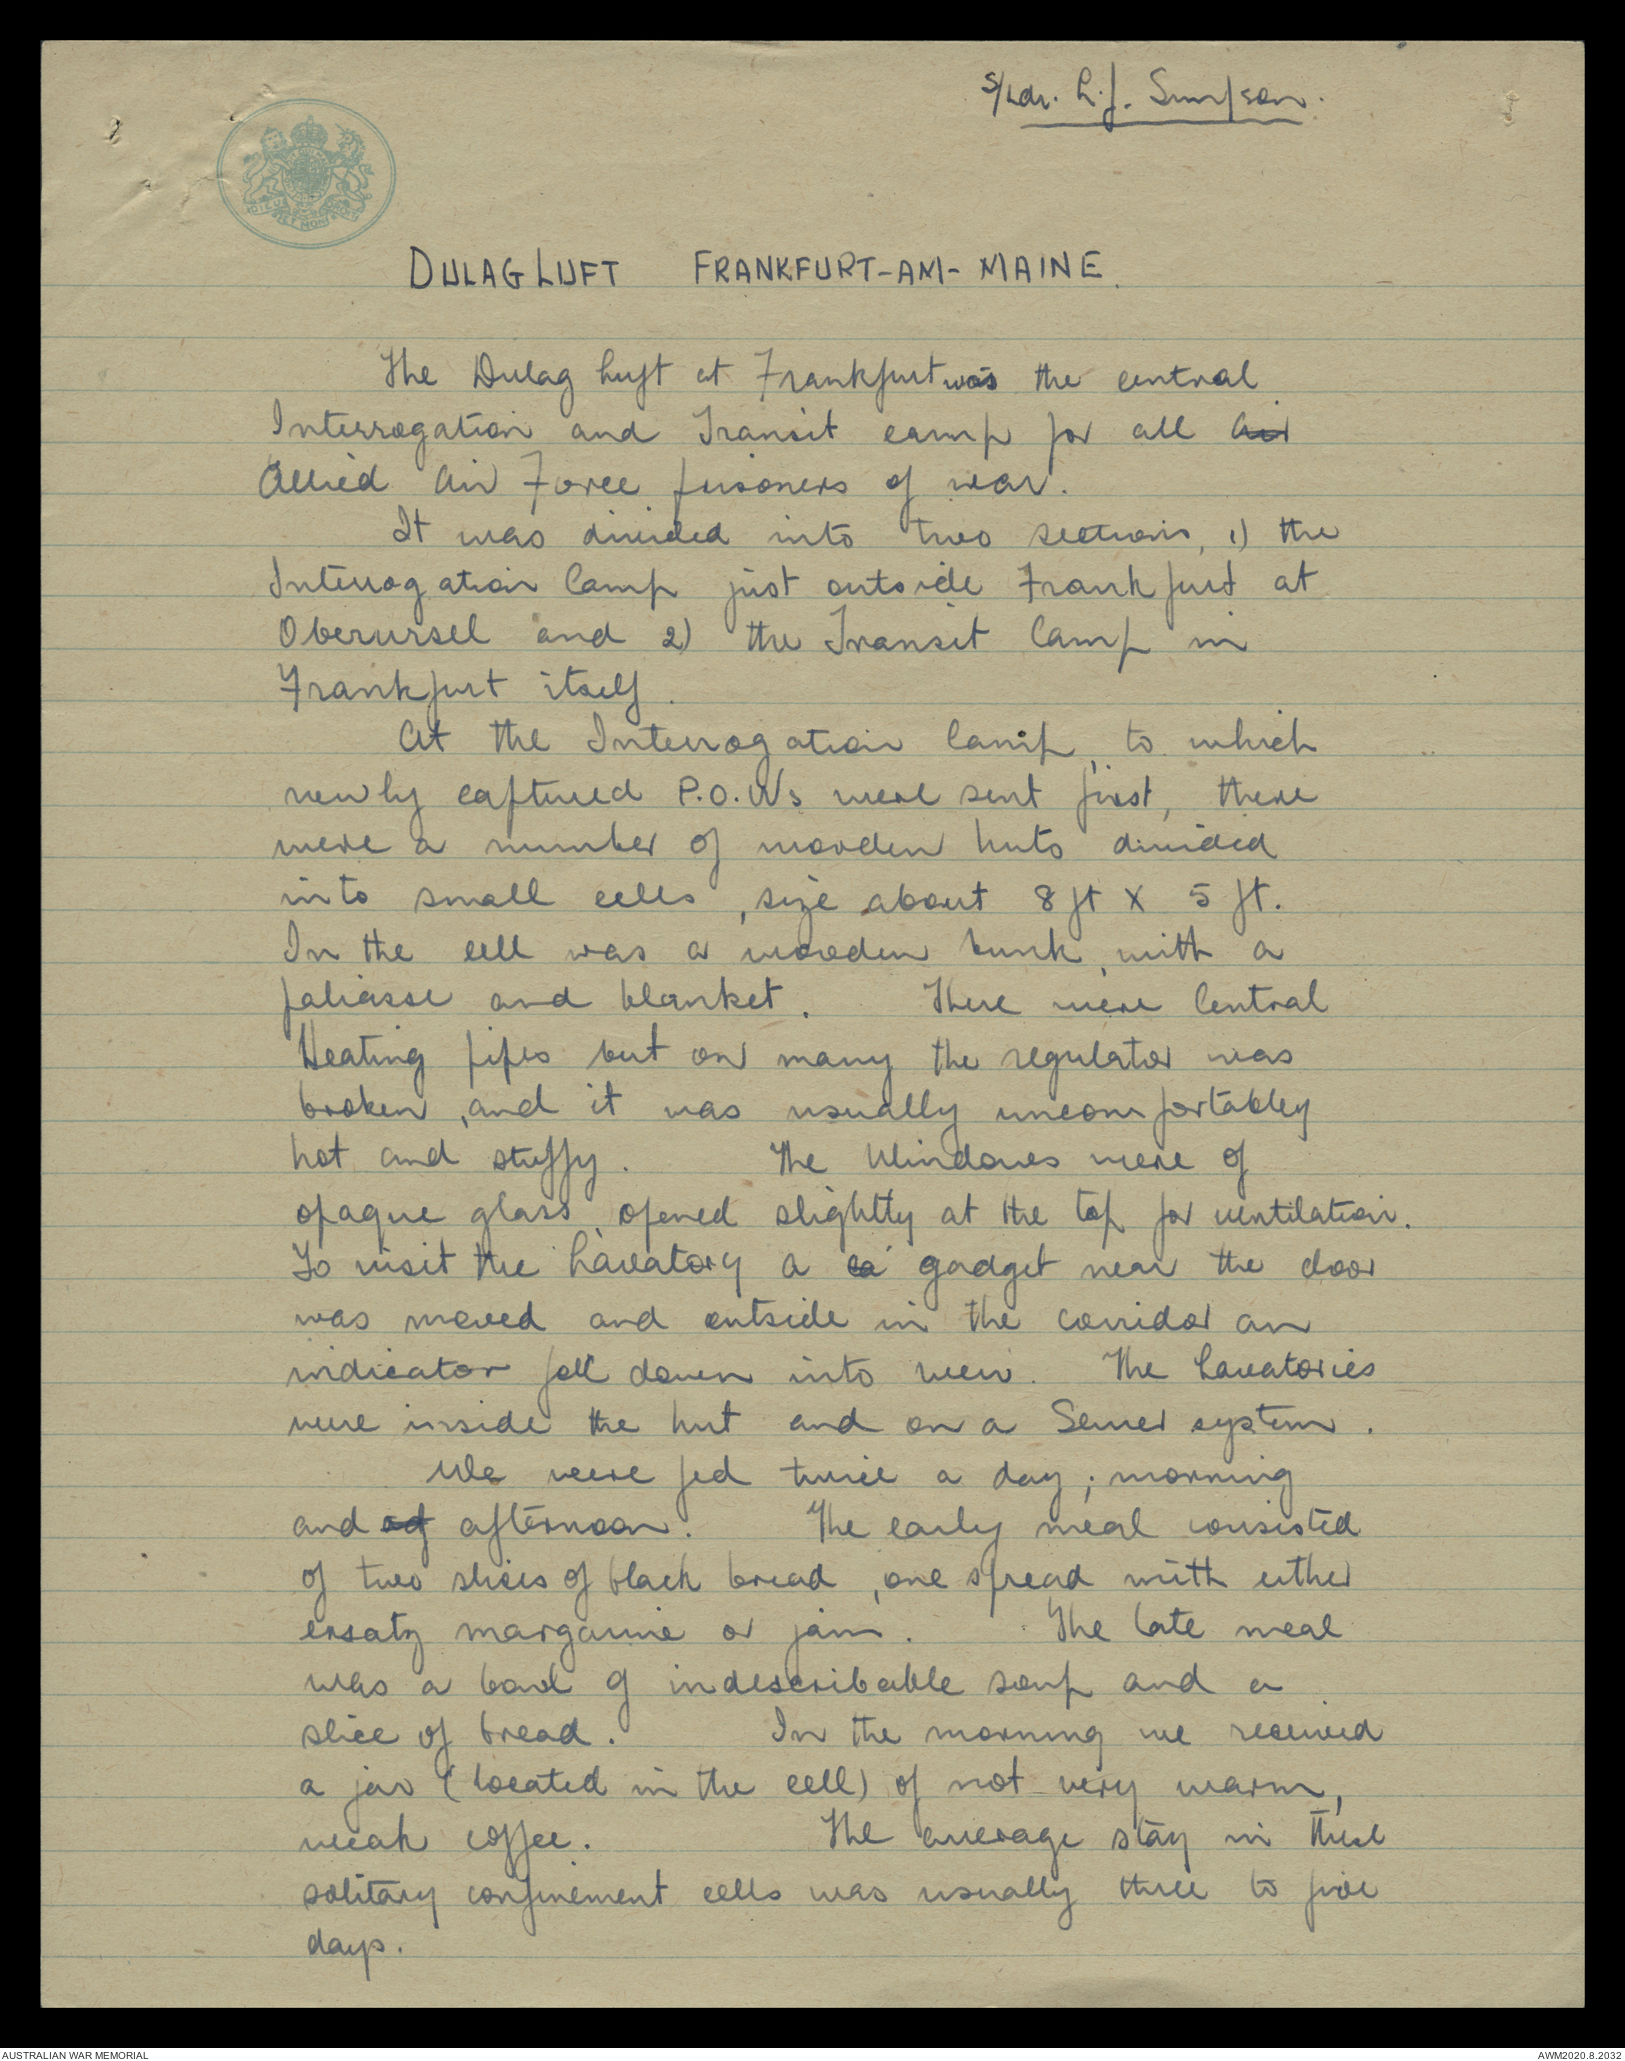 S/Ldr. L.J. Simpson.
DULAG LUFT FRANKFURT-AM-MAINE.
The Dulag Luft at Frankfurt was the central
Interrogation and Transit camp for all Air
Allied Air Force prisoners of war.
It was divided into two sections, 1) the
Interrogation Camp just outside Frankfurt at
Oberursel and 2) the Transit Camp in
Frankfurt itself.
At the Interrogation Camp, to which
newly captured P.O.Ws were sent first, there
were a number of wooden huts divided
into small cells, size about 8 ft X 5 ft.
In the cell was a wooden bunk, with a
paliasse and blanket. There were Central
Heating pipes but on many the regulator was
broken, and it was usually uncomfortabley
hot and stuffy. The Windows were of
opaque glass, opened slightly at the top for ventilation.
To visit the Lavatory a ca gadget near the door
was moved and outside in the corridor an
indicator fell down into view. The Lavatories
were inside the hut and on a Sewer system.
We were fed twice a day; morning
and of afternoon. The early meal consisted
of two slices of black bread, one spread with either
ersatz margarine or jam. The late meal
was a bowl of indescribable soup and a
slice of bread. In the morning we received
a jar (located in the cell) of not very warm,
weak coffee. The average stay in these
solitary confinement cells was usually three to five
days.
AUSTRALIAN WAR MEMORIAL
AWM2020.8.2032